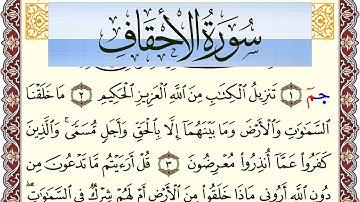 سُورَةُ الأَحْقَافِ
حمٓ ۝١ تَنزِيلُ الْكِتَابِ مِنَ اللَّهِ الْعَزِيزِ الْحَكِيمِ ۝٢ مَا خَلَقْنَا
السَّمَاوَاتِ وَالْأَرْضَ وَمَا بَيْنَهُمَا إِلَّا بِالْحَقِّ وَأَجَلٍ مُّسَمًّى ۚ وَالَّذِينَ
كَفَرُوا عَمَّا أُنذِرُوا مُعْرِضُونَ ۝٣ قُلْ أَرَءَيْتُم مَّا تَدْعُونَ مِن
دُونِ اللَّهِ أَرُونِي مَاذَا خَلَقُوا مِنَ الْأَرْضِ أَمْ لَهُمْ شِرْكٌ فِي السَّمَاوَاتِ ۖ